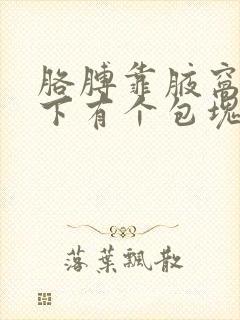 胳膊靠腋窝
下有个包块
落葉飄散